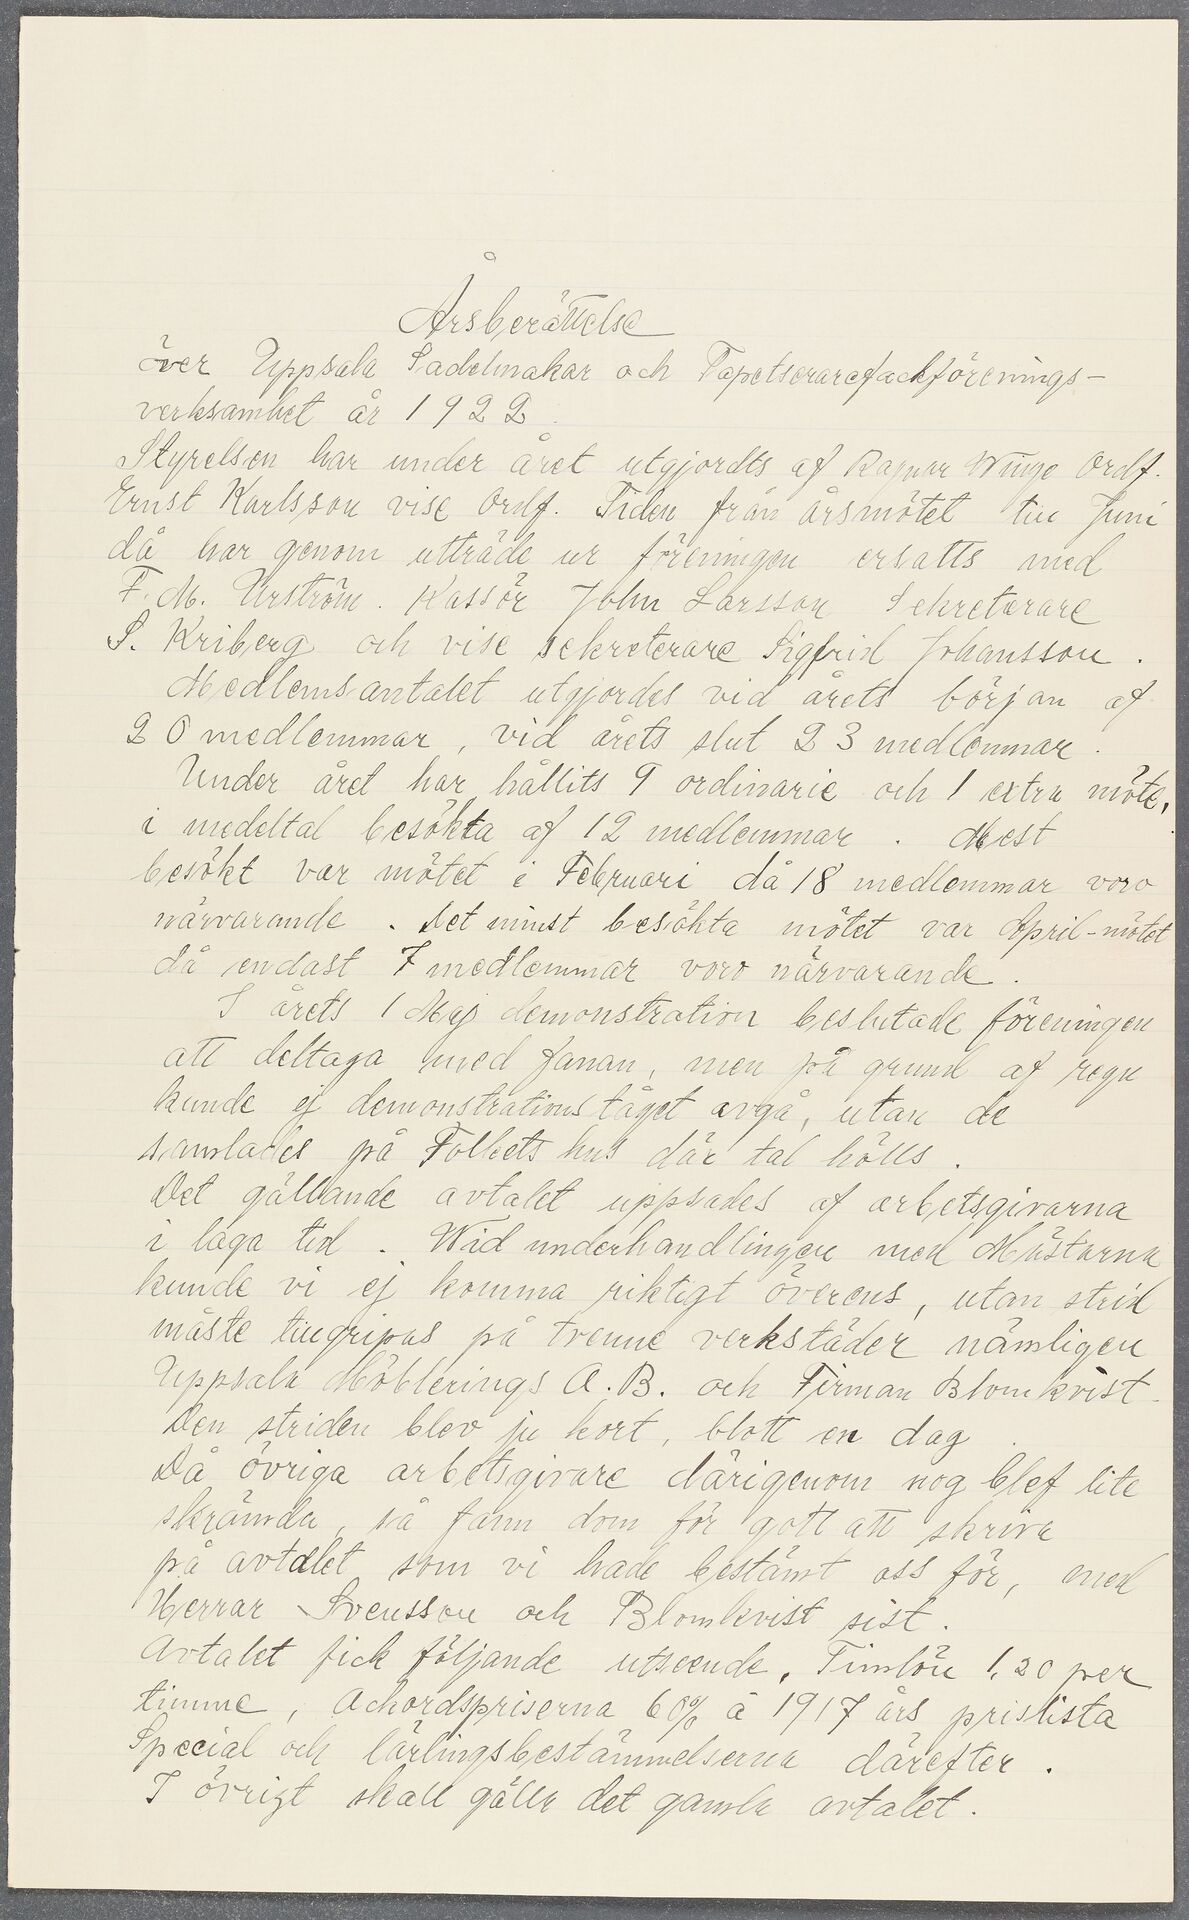 Årsberättelse
över Uppsala Sadelmakar och Tapetserarefackförenings-
verksamhet år 1922.
Styrelsen har under året utgjordts af Ragnar Winge Ordf.
Ernst Karlsson vise Ordf. Tiden från årsmötet till Juni
då har genom utträde ur föreningen ersatts med
F. M. Urström. Kassör John Larsson Sekreterare
S. Kriberg och vise sekreterare Sigfrid Johansson.
Medlemsantalet utgjordes vid årets början af
20 medlemmar, vid årets slut 23 medlemmar.
Under året har hållits 9 ordinarie och 1 extra möte,
i medeltal besökta af 12 medlemmar. Mest
besökt var mötet i Februari då 18 medlemmar voro
närvarande. Det minst besökta mötet var April-mötet
då endast 7 medlemmar voro närvarande.
I årets 1 Maj demonstration beslutade föreningen
att deltaga med fanan, men på grund af regn
kunde ej demonstrationståget avgå, utan de
samlades på Folkets hus där tal hölls.
Det gällande avtalet uppsades af arbetsgivarna
i laga tid. Wid underhandlingen med Mästarna
kunde vi ej komma riktigt överens, utan strid
måste tillgripas på trenne verkstäder nämligen
Uppsala Möblerings A.B. och Firman Blomkvist.
Den striden blev ju kort, blott en dag.
Då övriga arbetsgivare därigenom nog blef lite
skrämda, så fann dom för gott att skriva
på avtalet som vi hade bestämt oss för, med
Herrar Svensson och Blomkvist sist.
Avtalet fick följande utseende, Timlön 1,20 per
timme, Ackordspriserna 60% å 1917 års prislista
Special och lärlingsbestämmelserna därefter.
I övrigt skall gälla det gamla avtalet.